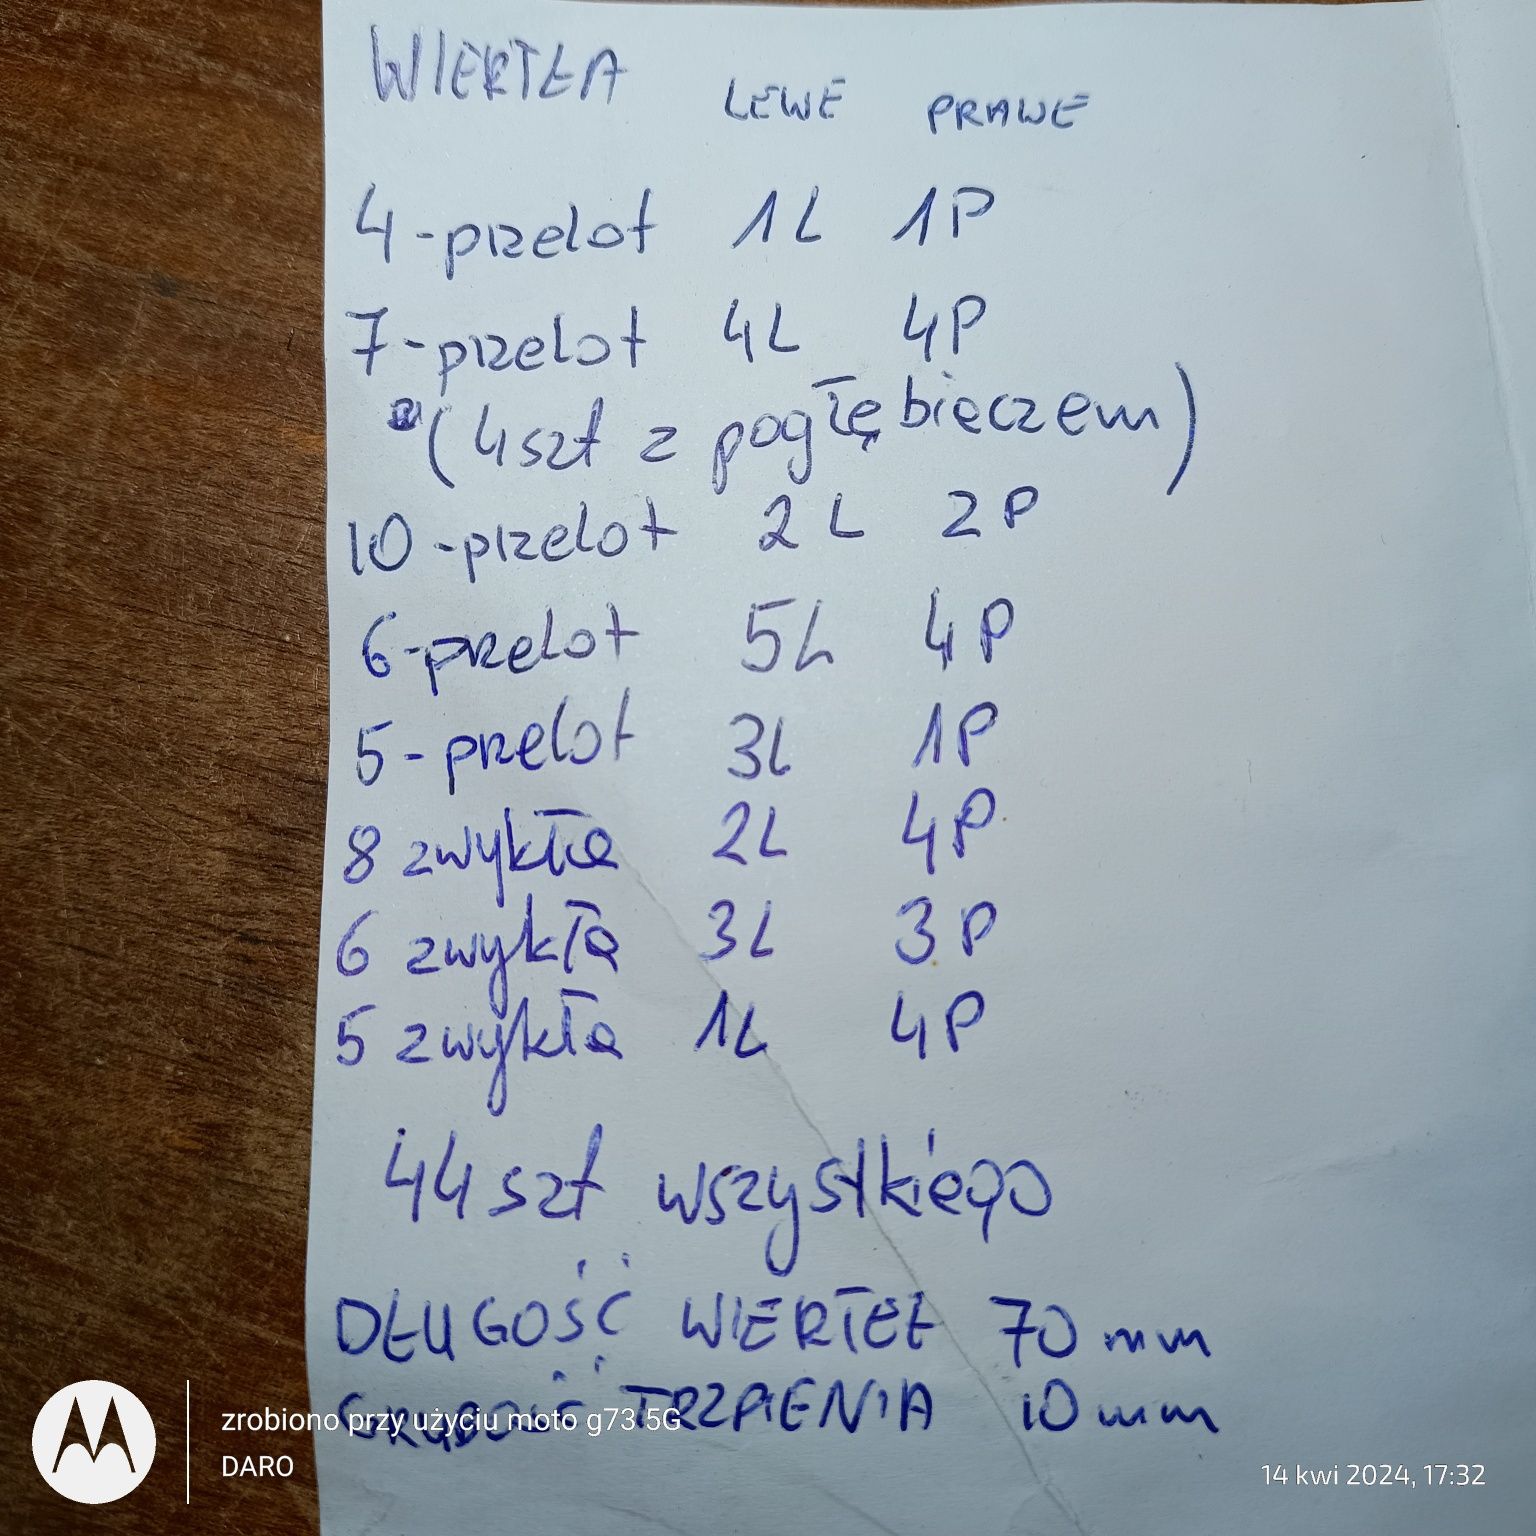 WIERTŁA LEWE PRAWE
4-przelot 1L 1P
7-przelot 4L 4P
(4szt z pogłębieczem)
10-przelot 2L 2P
6-przelot 5L 4P
5-przelot 3L 1P
8 zwykłe 2L 4P
6 zwykłe 3L 3P
5 zwykłe 1L 4P
44 szt wszystkiego
DŁUGOŚĆ WIERTEŁ 70 mm
GRUBOŚĆ TRZPIENIA 10 mm
zrobiono przy użyciu moto g73 5G
DARO
14 kwi 2024, 17:32